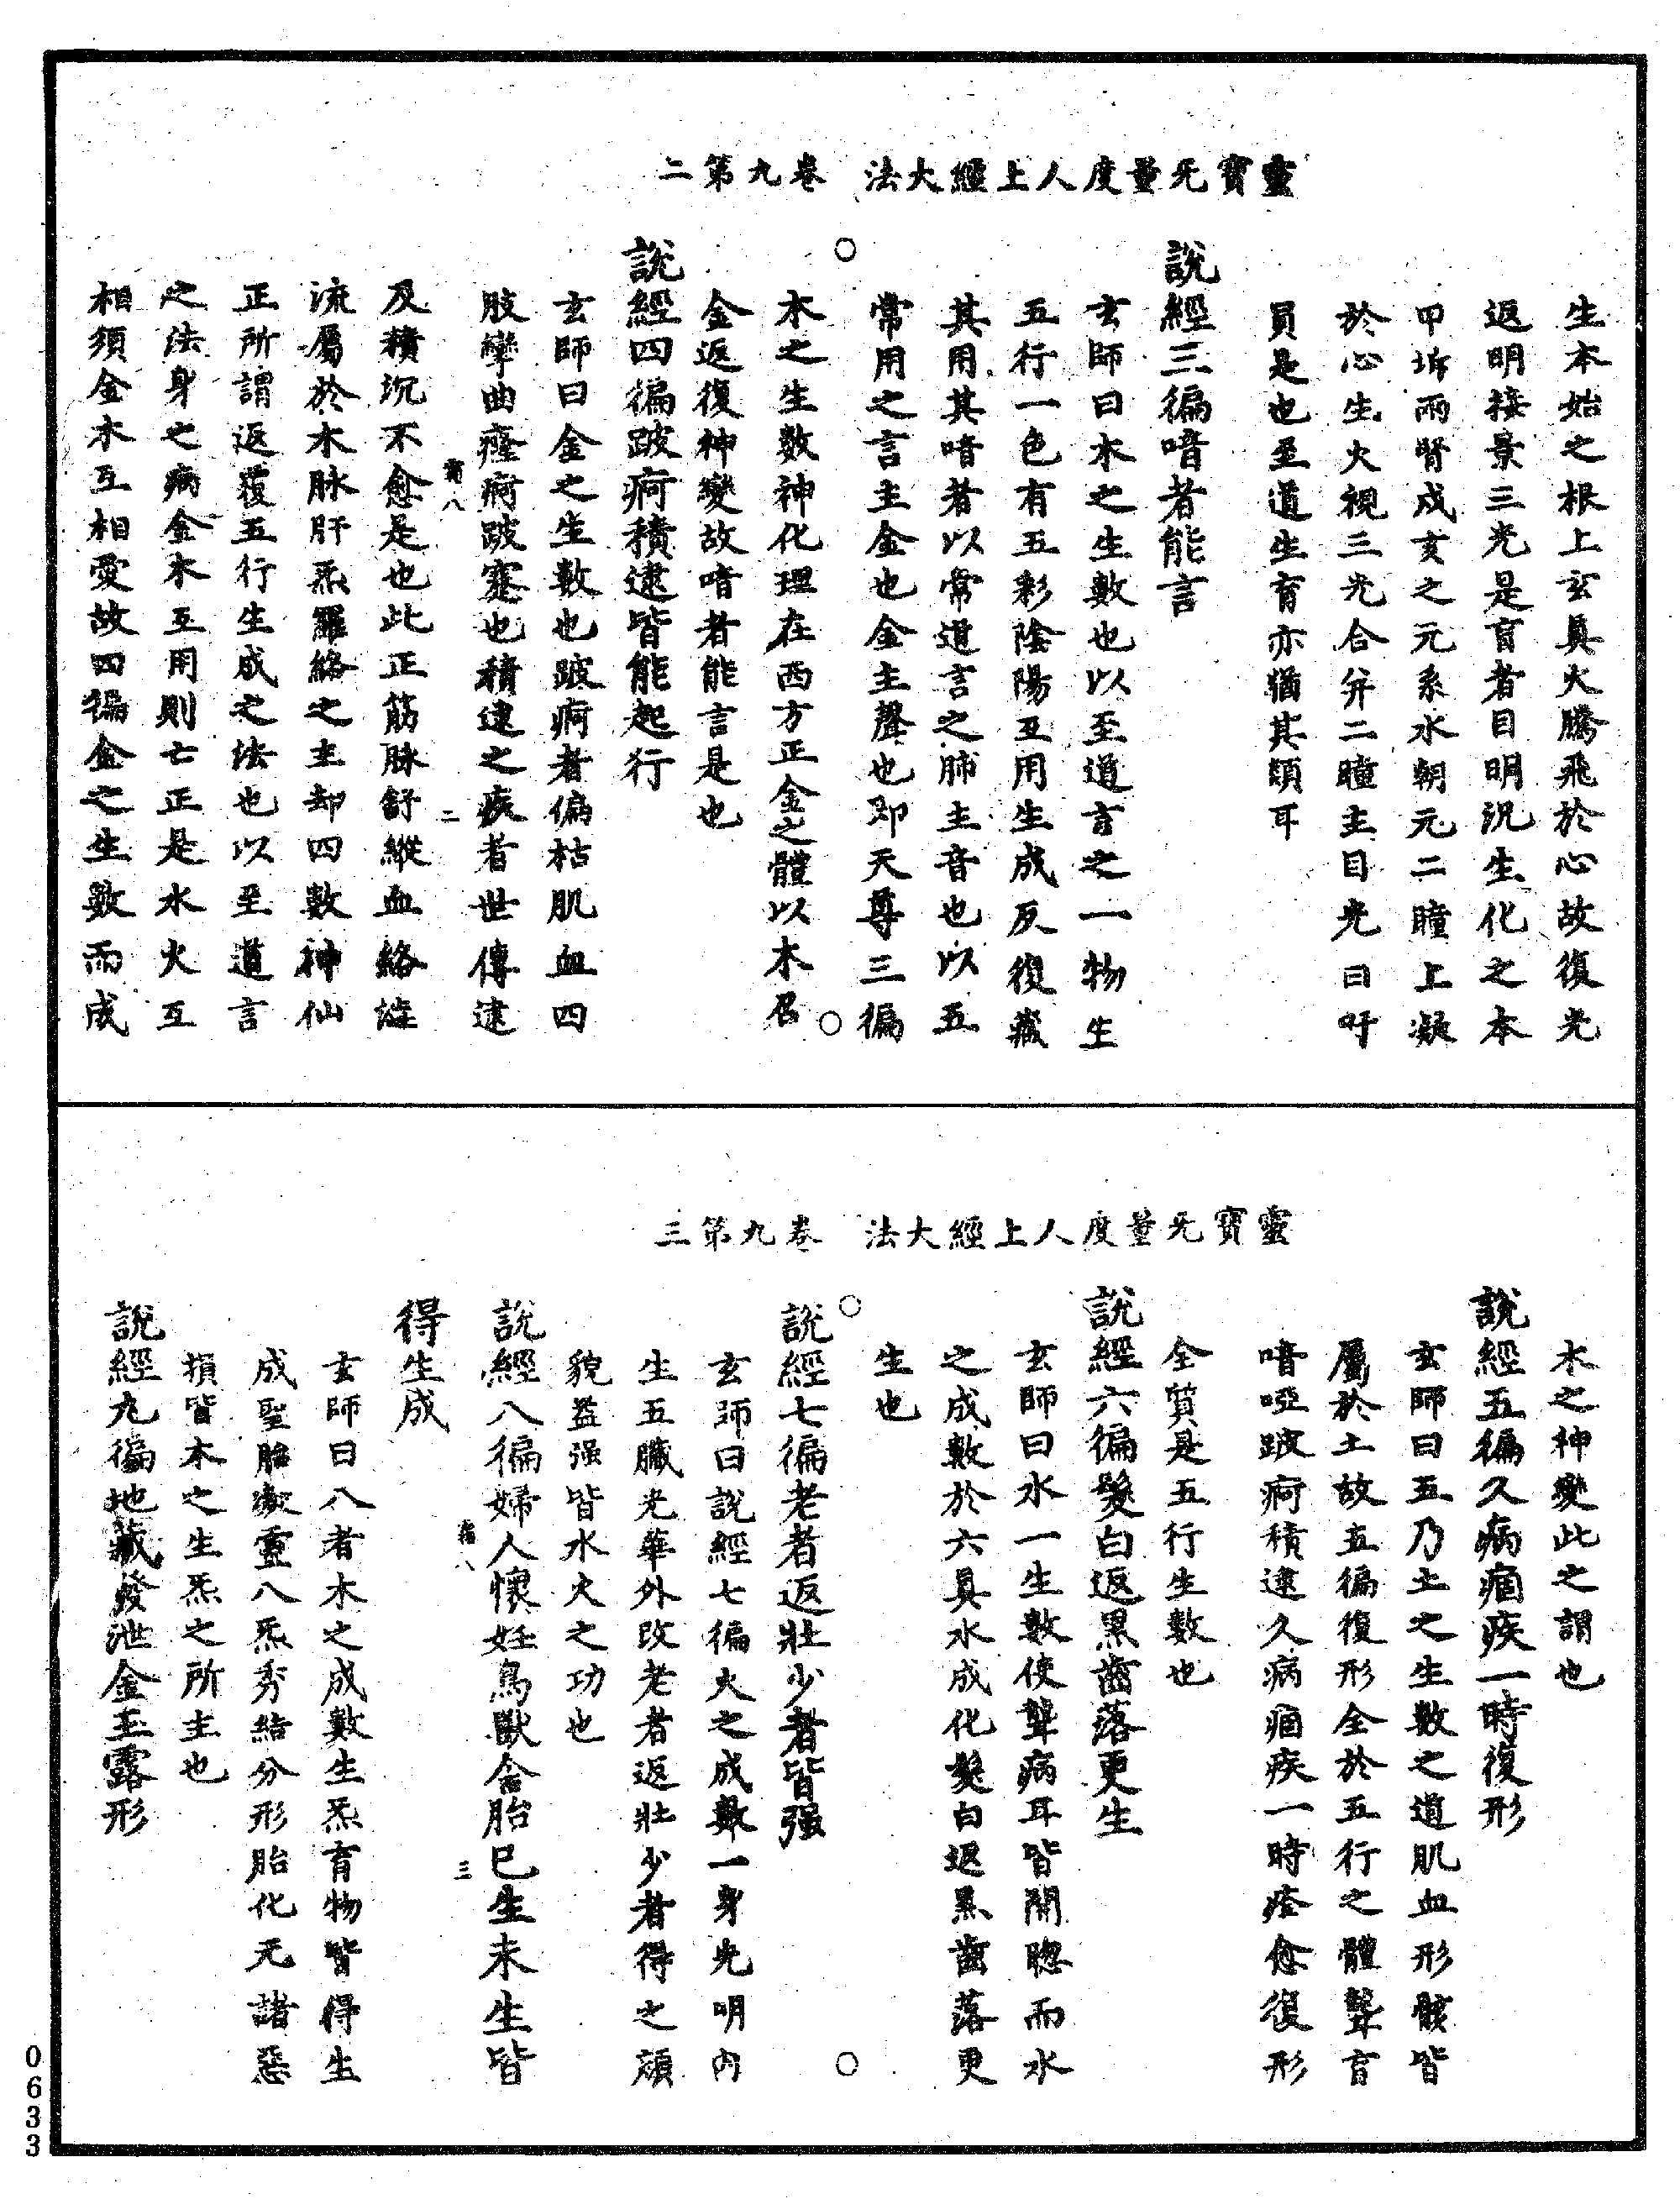 靈寶无量度人上經大法　卷九第二
生本始之根上玄真火騰飛於心故復光
返明接景三光是盲者目明況生化之本
甲坼而腎戌亥之元系水朝元二瞳上凝
於心生火視三光合并二瞳主目光曰吁
員是也至道生育亦猶其頤耳
說經三徧喑者能言
玄師曰木之生數也以至道言之一物生
五行一色有五彩陰陽互用生成反復藏
其用其喑者以常道言之肺主音也以五
常用之言主金也金主聲也即天尊三徧
木之生數神化理在西方正金之體以木召
金返復神變故喑者能言是也
說經四徧跛痾積逮皆能起行
玄師曰金之生數也跛痾者偏枯肌血四
肢攣曲癃痾跛蹇也積逮之疾者世傳逮
霜八　二
及積沉不愈是也此正筋脉舒縱血絡註
流屬於木脉肝炁羅絡之主却四數神仙
正所謂返覆五行生成之法也以至道言
之法身之病金木互用則亡正是水火互
相須金木互相愛故四徧金之生數而成
靈寶无量度人上經大法　卷九第三
木之神變此之謂也
說經五徧久病痼疾一時復形
玄師曰五乃土之生數之道肌血形骸皆
屬於土故五徧復形全於五行之體聾盲
喑啞跛痾積逮久病痼疾一時痊愈復形
全質是五行生數也
說經六徧髮白返黑齒落更生
玄師曰水一生數使聾病耳皆開聰而水
之成數於六真水成化髮白返黑齒落更
生也
說經七徧老者返壯少者皆强
玄師曰說經七徧火之成數一身光明內
生五臟光華外改老者返壯少者得之顏
貌益强皆水火之功也
說經八徧婦人懷妊鳥獸含胎已生未生皆
霜八　三
得生成
玄師曰八者木之成數生炁育物皆得生
成聖胎凝靈八炁秀結分形胎化无諸惡
損皆木之生炁之所主也
說經九徧地藏發泄金玉露形
0633